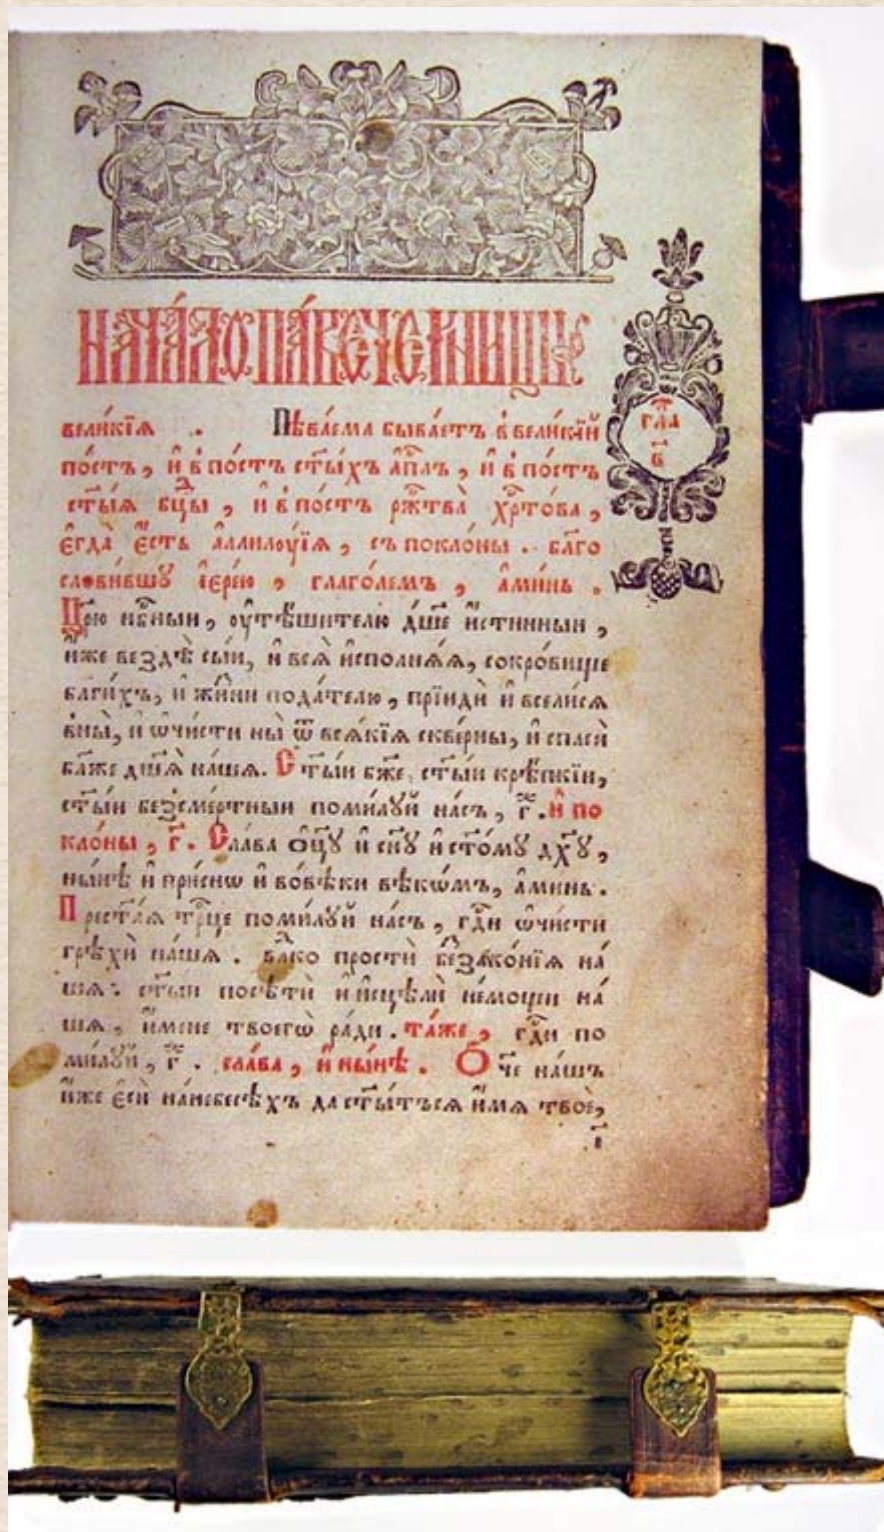 НАЧА́ЛО ПА́ВЕЧЕРНИЦЫ
вели́кїѧ . Пѣва́ема быва́етъ в вели́кїй
по́стъ , и҆ в по́стъ ст҃ы́хъ а҆пл҃ъ , и҆ в по́стъ
ст҃ы́ѧ бц҃ы , и҆ в по́стъ рж҃тва̀ хр҃то́ва ,
є҆гда̀ є҆́сть а҆ллилꙋ́їѧ , съ покло́ны . бл҃го
слови́вшꙋ і҆ере́ю , глаго́лемъ , а҆ми́нь .
гла
в҃
Цр҃ю нб҃ныи , ᲂу҆тѣ́шителю дш҃е и҆́стинныи ,
и҆́же вездѣ̀ сыи , и҆ всѧ̀ и҆сполнѧ́ѧ , сокро́вище
блг҃и́хъ , и҆ жи҃ни пода́телю , прїидѝ и҆ всели́сѧ
в ны̀ , и҆ ѡ҆чи́сти ны̀ ѿ всѧ́кїѧ скве́рны , и҆ спасѝ
бл҃же дш҃ѧ̀ на́шѧ . Ст҃ы́и бж҃е , ст҃ы́и крѣ́пкїи ,
ст҃ы́и безсме́ртныи поми́лꙋй на́съ , г҃ . И҆ по
кло́ны , г҃ . Сла́ва ѻ҆ц҃ꙋ̀ и҆ сн҃ꙋ и҆ ст҃о́мꙋ дх҃ꙋ ,
ны́нѣ и҆ при́снѡ и҆ во вѣ́ки вѣкѡ́мъ , а҆ми́нь .
Прест҃а́ѧ трⷪ҇це поми́лꙋй на́съ , гд҃и ѡ҆чи́сти
грѣхѝ на́шѧ . влⷣко простѝ беззако́нїѧ на́
шѧ . ст҃ы́и посѣтѝ и҆ и҆сцѣлѝ не́мощи на́
шѧ , и҆́мене твоегѡ̀ ра́ди . та́же , гд҃и по
ми́лꙋй , г҃ . сла́ва , и҆ ны́нѣ . Ѻ҆́че на́шъ
и҆́же є҆сѝ на небесѣ́хъ да ст҃и́тъсѧ и҆́мѧ твоѐ ,
і҃